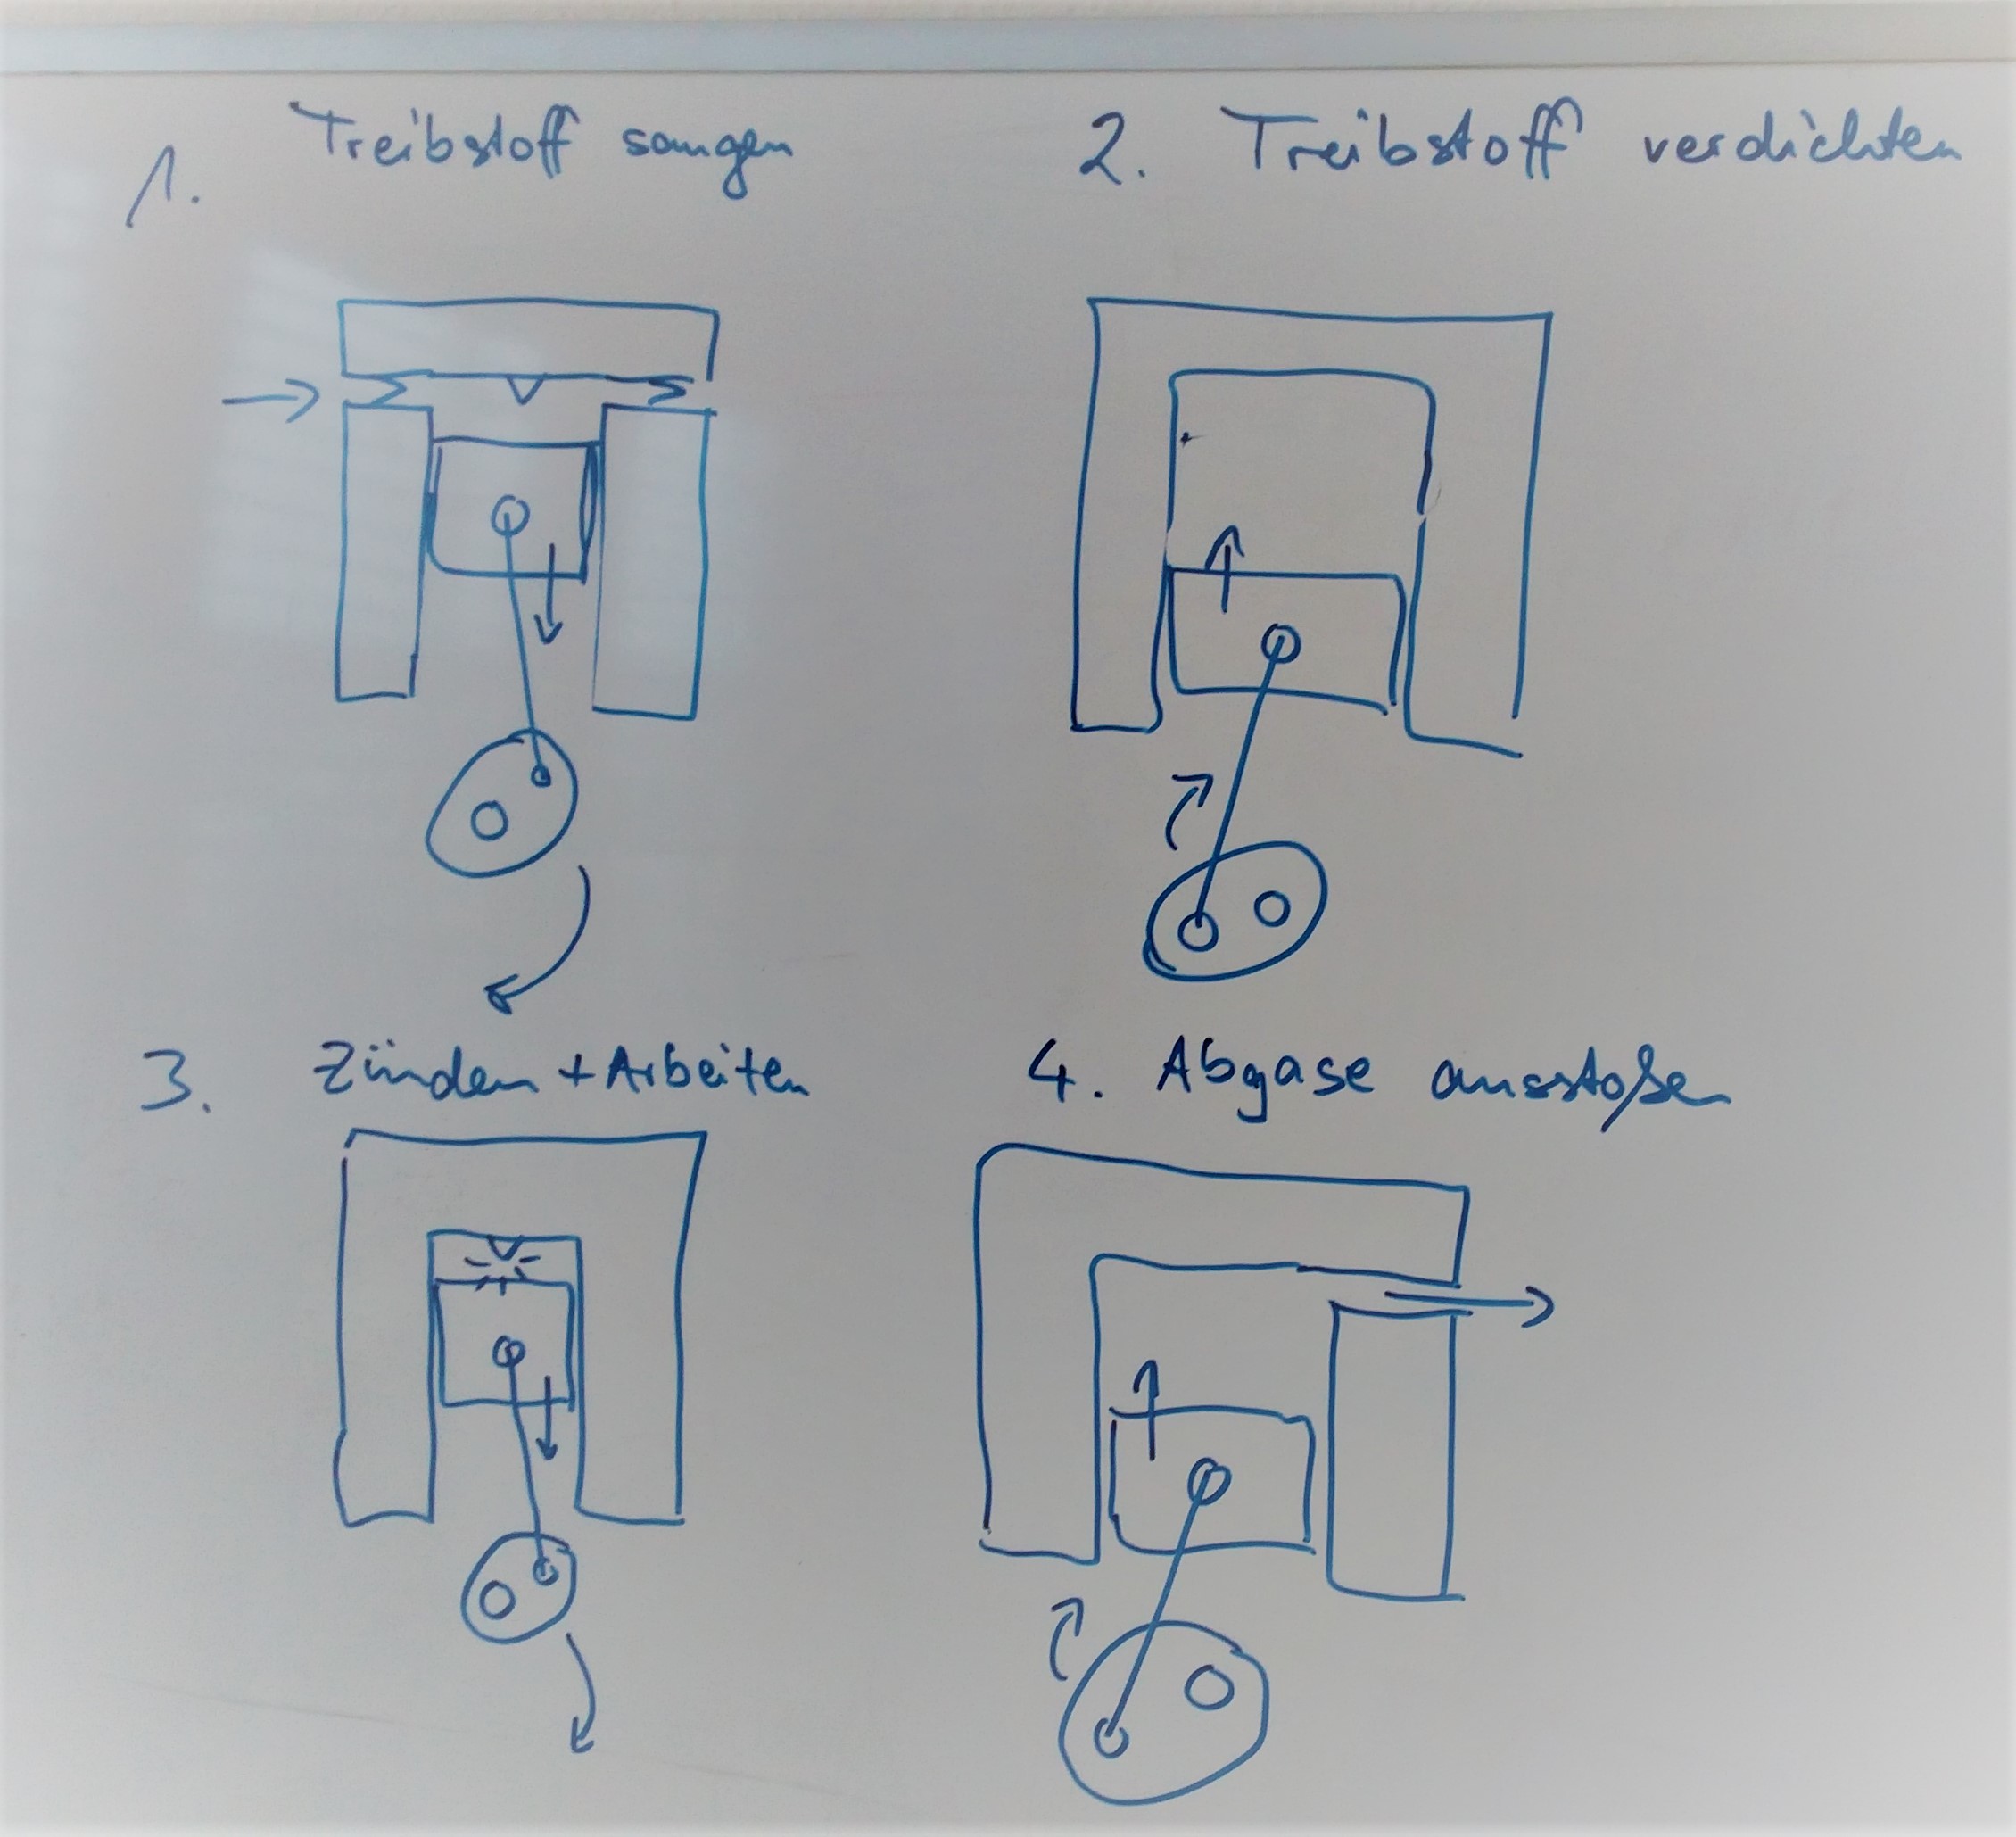 1. Treibstoff saugen
2. Treibstoff verdichten
3. Zünden + Arbeiten
4. Abgase ausstoßen